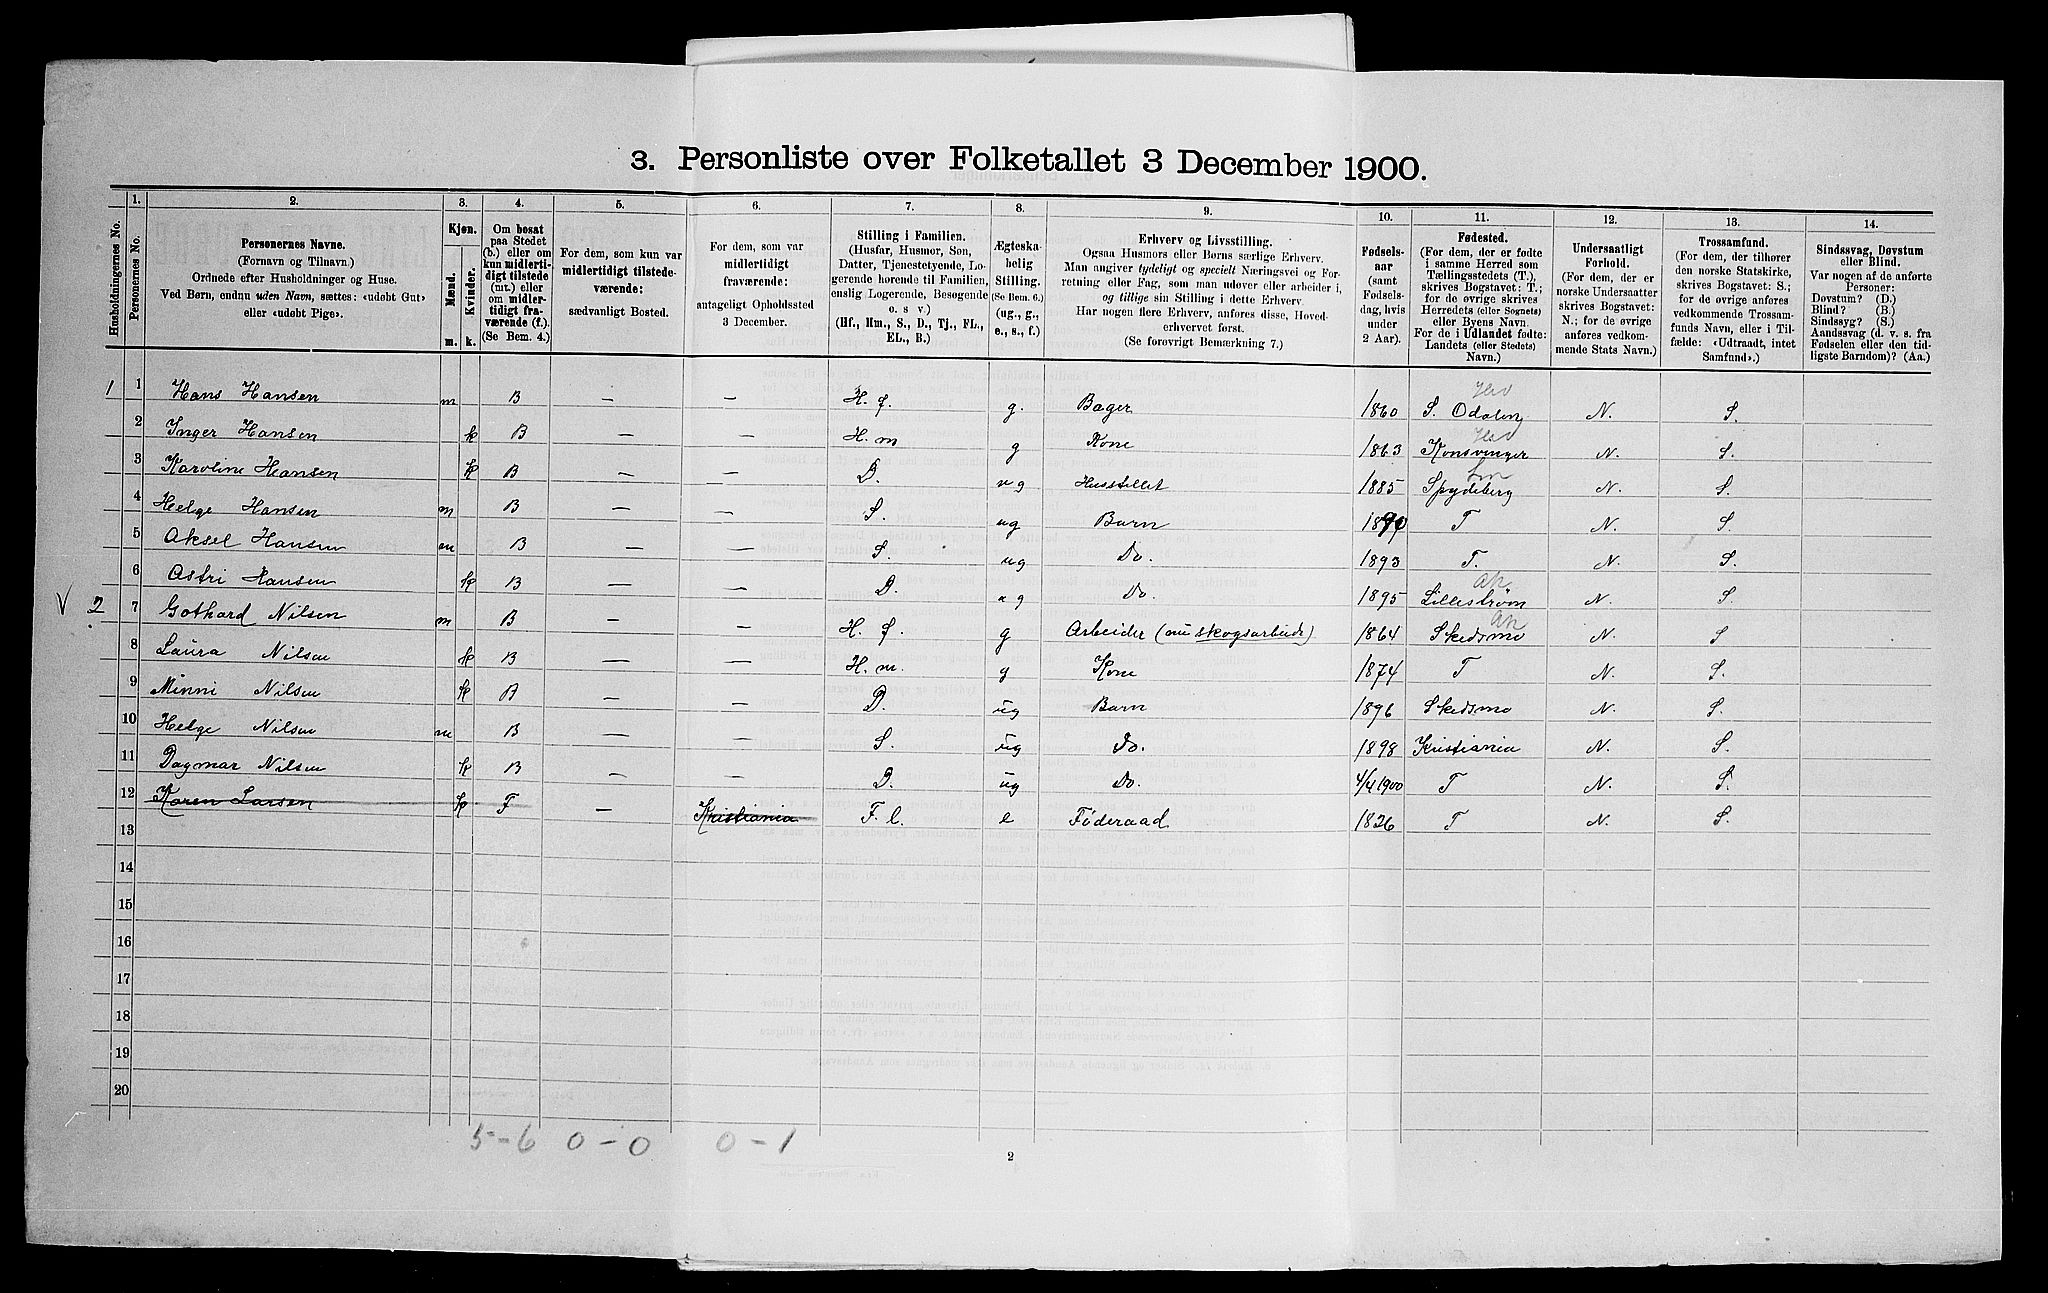 3. Personliste over Folketallet 3 December 1900.
Husholdningernes No.
1.
Personernes No.
2.
Personernes Navne.
(Fornavn og Tilnavn.)
Ordnede efter Husholdninger og Huse.
Ved Børn, endnu uden Navn, sættes: «udøbt Gut»
eller «udøbt Pige».
3.
Kjøn.
Mænd.
Kvinder.
m.
k.
4.
Om bosat
paa Stedet
(b.) eller om
kun midlerti-
digt tilstede
(mt.) eller
om midler-
tidigt fra-
værende (f.).
(Se Bem. 4.)
5.
For dem, som kun var
midlertidigt tilstede-
værende:
sædvanligt Bosted.
6.
For dem, som var
midlertidigt
fraværende:
antageligt Opholdssted
3 December.
7.
Stilling i Familien.
(Husfar, Husmor, Søn,
Datter, Tjenestetyende, Lo-
gerende hørende til Familien,
enslig Logerende, Besøgende
o. s v.)
(Hf., Hm., S., D., Tj., FL.,
EL., B.)
8.
Ægteska-
belig
Stilling.
(Se Bem. 6.)
(ug., g.,
e., s., f.)
9.
Erhverv og Livsstilling.
Ogsaa Husmors eller Børns særlige Erhverv.
Man angiver tydeligt og specielt Næringsvei og For-
retning eller Fag, som man udøver eller arbeider i,
og tillige sin Stilling i dette Erhverv.
Har nogen flere Erhverv, anføres disse, Hoved-
erhvervet først.
(Se forøvrigt Bemærkning 7.)
10.
Fødsels-
aar
(samt
Fødsels-
dag, hvis
under
2 Aar).
11.
Fødested.
(For dem, der er fødte
i samme Herred som
Tællingsstedets (T.),
skrives Bogstavet: T.;
for de øvrige skrives
Herredets (eller Sognets)
eller Byens Navn.
For de i Udlandet fødte:
Landets (eller Stedets)
Navn.)
12.
Undersaatligt
Forhold.
(For dem, der er
norske Undersaatter
skrives Bogstavet:
N.; for de øvrige
anføres vedkom-
mende Stats Navn.)
13.
Trossamfund.
(For dem, der tilhører
den norske Statskirke,
skrives Bogstavet: S.;
for de øvrige anføres
vedkommende Trossam-
funds Navn, eller i Til-
fælde: «Udtraadt, intet
Samfund».)
14.
Sindssvag, Døvstum
eller Blind.
Var nogen af de anførte
Personer:
Døvstum? (D.)
Blind? (B.)
Sindssyg? (S.)
Aandssvag (d. v. s. fra
Fødselen eller den tid-
ligste Barndom)? (Aa.)
1 1 Hans Hansen m B — — H. f. g. Bager 1860 S. Odalen Hed N. S.
2 Inger Hansen k B — — H. m g Kone 1863 Konsvinger Hed N. S.
3 Karoline Hansen k B — — D. ug Husstellet 1885 Spydeberg Sm N. S.
4 Helge Hansen m B — — S. ug Barn 1890 T N. S.
5 Aksel Hansen m B — — S. ug Do. 1893 T. N. S.
6 Astri Hansen k B — — D. ug Do. 1895 Lillestrøm Ak N. S.
V 2 7 Gothard Nilsen m B — — H. f. g Arbeider (nu skogsarbeide) 1864 Skedsmo Ak N. S
8 Laura Nilsen k B — — H. m. g Kone 1874 T N. S.
9 Minni Nilsen k B — — D. ug Barn 1896 Skedsmo N. S.
10 Helge Nilsen m B — — S. ug Do. 1898 Kristiania N. S.
11 Dagmar Nilsen k B — — D. ug Do. 4/4 1900 T N. S.
12 Karen Larsen k F — Kristiania F. l. e Føderaad 1826 T N. S.
13
14
15
16
17
18
19
20
5-6 0-0 0-1
2